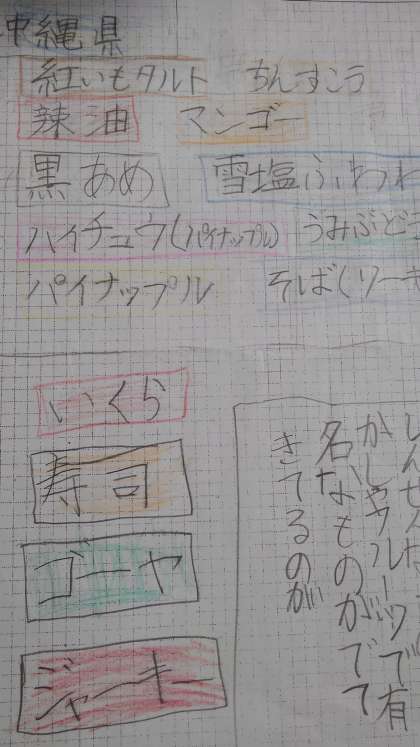 沖縄県
紅いもタルト ちんすこう
辣油 マンゴー
黒あめ 雪塩ふわわ
ハイチュウ(パイナップル) うみぶど
パイナップル そばくリーキ
いくら
寿司
ゴーヤ
ジャーキー
かしやフルーツで有
名なものがでて
きてるのが